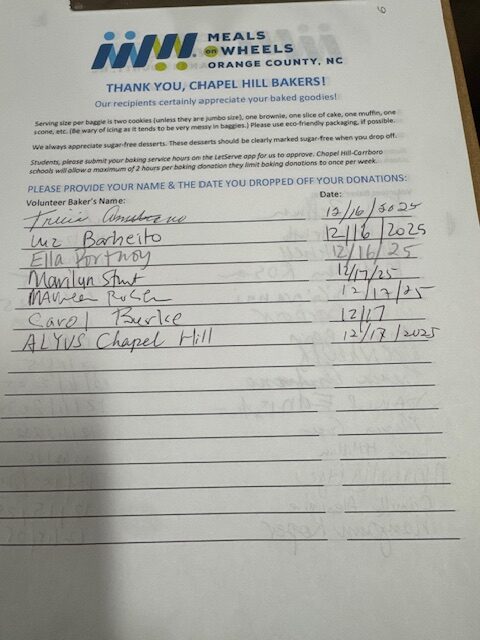 MEALS
on WHEELS
ORANGE COUNTY, NC
THANK YOU, CHAPEL HILL BAKERS!
Our recipients certainly appreciate your baked goodies!
Serving size per baggie is two cookies (unless they are jumbo size), one brownie, one slice of cake, one muffin, one
scone, etc. (Be wary of icing as it tends to be very messy in baggies.) Please use eco-friendly packaging, if possible.
We always appreciate sugar-free desserts. These desserts should be clearly marked sugar-free when you drop off.
Students, please submit your baking service hours on the LetServe app for us to approve. Chapel Hill-Carrboro
schools will allow a maximum of 2 hours per baking donation they limit baking donations to once per week.
PLEASE PROVIDE YOUR NAME & THE DATE YOU DROPPED OFF YOUR DONATIONS:
Volunteer Baker's Name: Date:
12/16/2025
Luz Barbeito 12/16/2025
Ella Portnoy 12/16/25
Marilyn 12/17/25
Maureen 12/17/25
Carol Burke 12/17
ALYVS Chapel Hill 12/17/2025